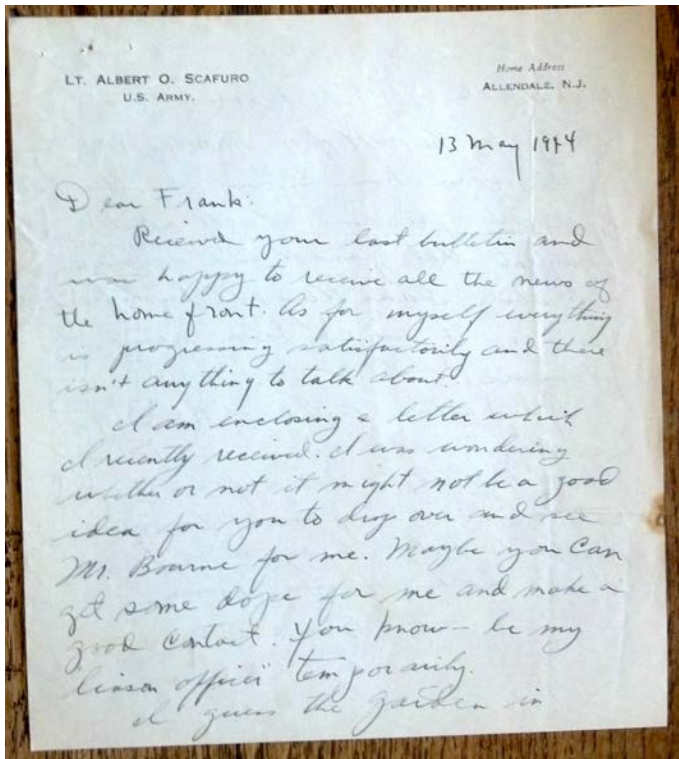 LT. ALBERT O. SCAFURO
U.S. ARMY.
Home Address
ALLENDALE, N.J.
13 May 1944
Dear Frank:
Received your last bulletin and
was happy to receive all the news of
the home front. As for myself everything
is progressing satisfactorily and there
isn't anything to talk about.
I am enclosing a letter which
I recently received. I was wondering
whether or not it might not be a good
idea for you to drop over and see
Mr. Bourne for me. Maybe you can
get some dope for me and make a
good contact. You know - be my
liason officer" temporarily.
I guess the garden in